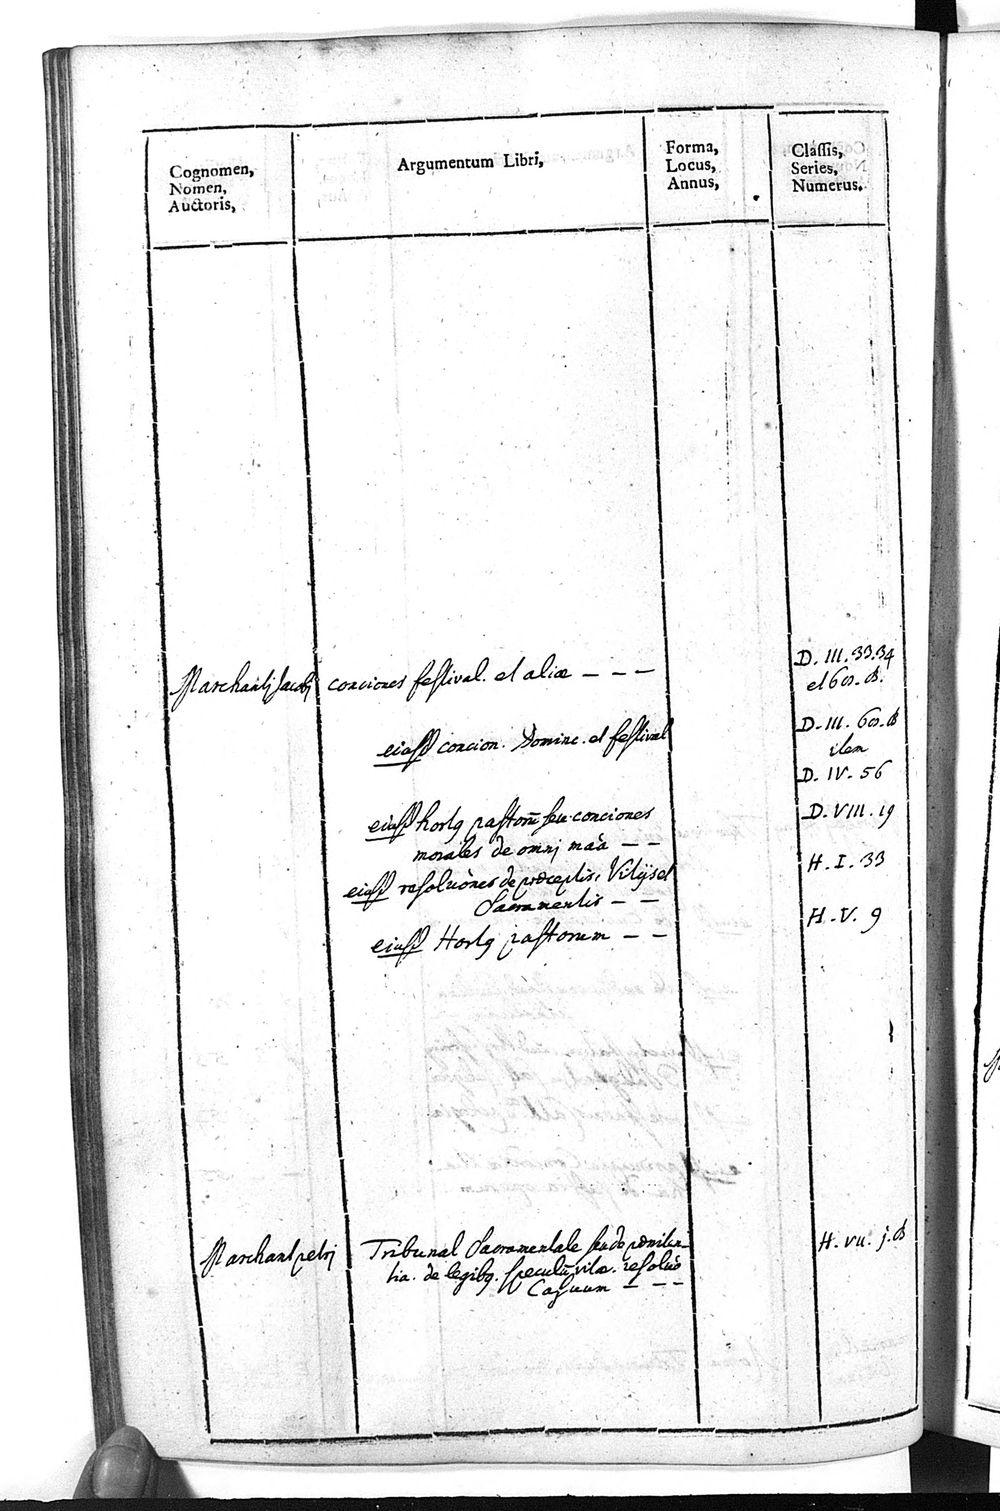 Cognomen,
Nomen,
Auctoris,
Argumentum Libri,
Forma,
Locus,
Annus,
Classis,
Series,
Numerus.
Marchantij Jacobi conciones festival. et aliæ - - - D. III. 33.34
et 60.
eiusd concion. Domine. et festival D. III. 60.
item
D. IV. 56
eiusd hortq pastorũ seu conciones D. VIII. 19
morales de omnj maã - -
eiusd resoluõnes de præceptis, Vitijs et H. I. 33
Sacramentis - -
eiusd Hortq pastorum - - H. V. 9
Marchant petrj Tribunal Sacramentale seu de pœniten- H. VII. j.
tia. de legibq. speculũ vitæ. resoluõ
Casuum - - -